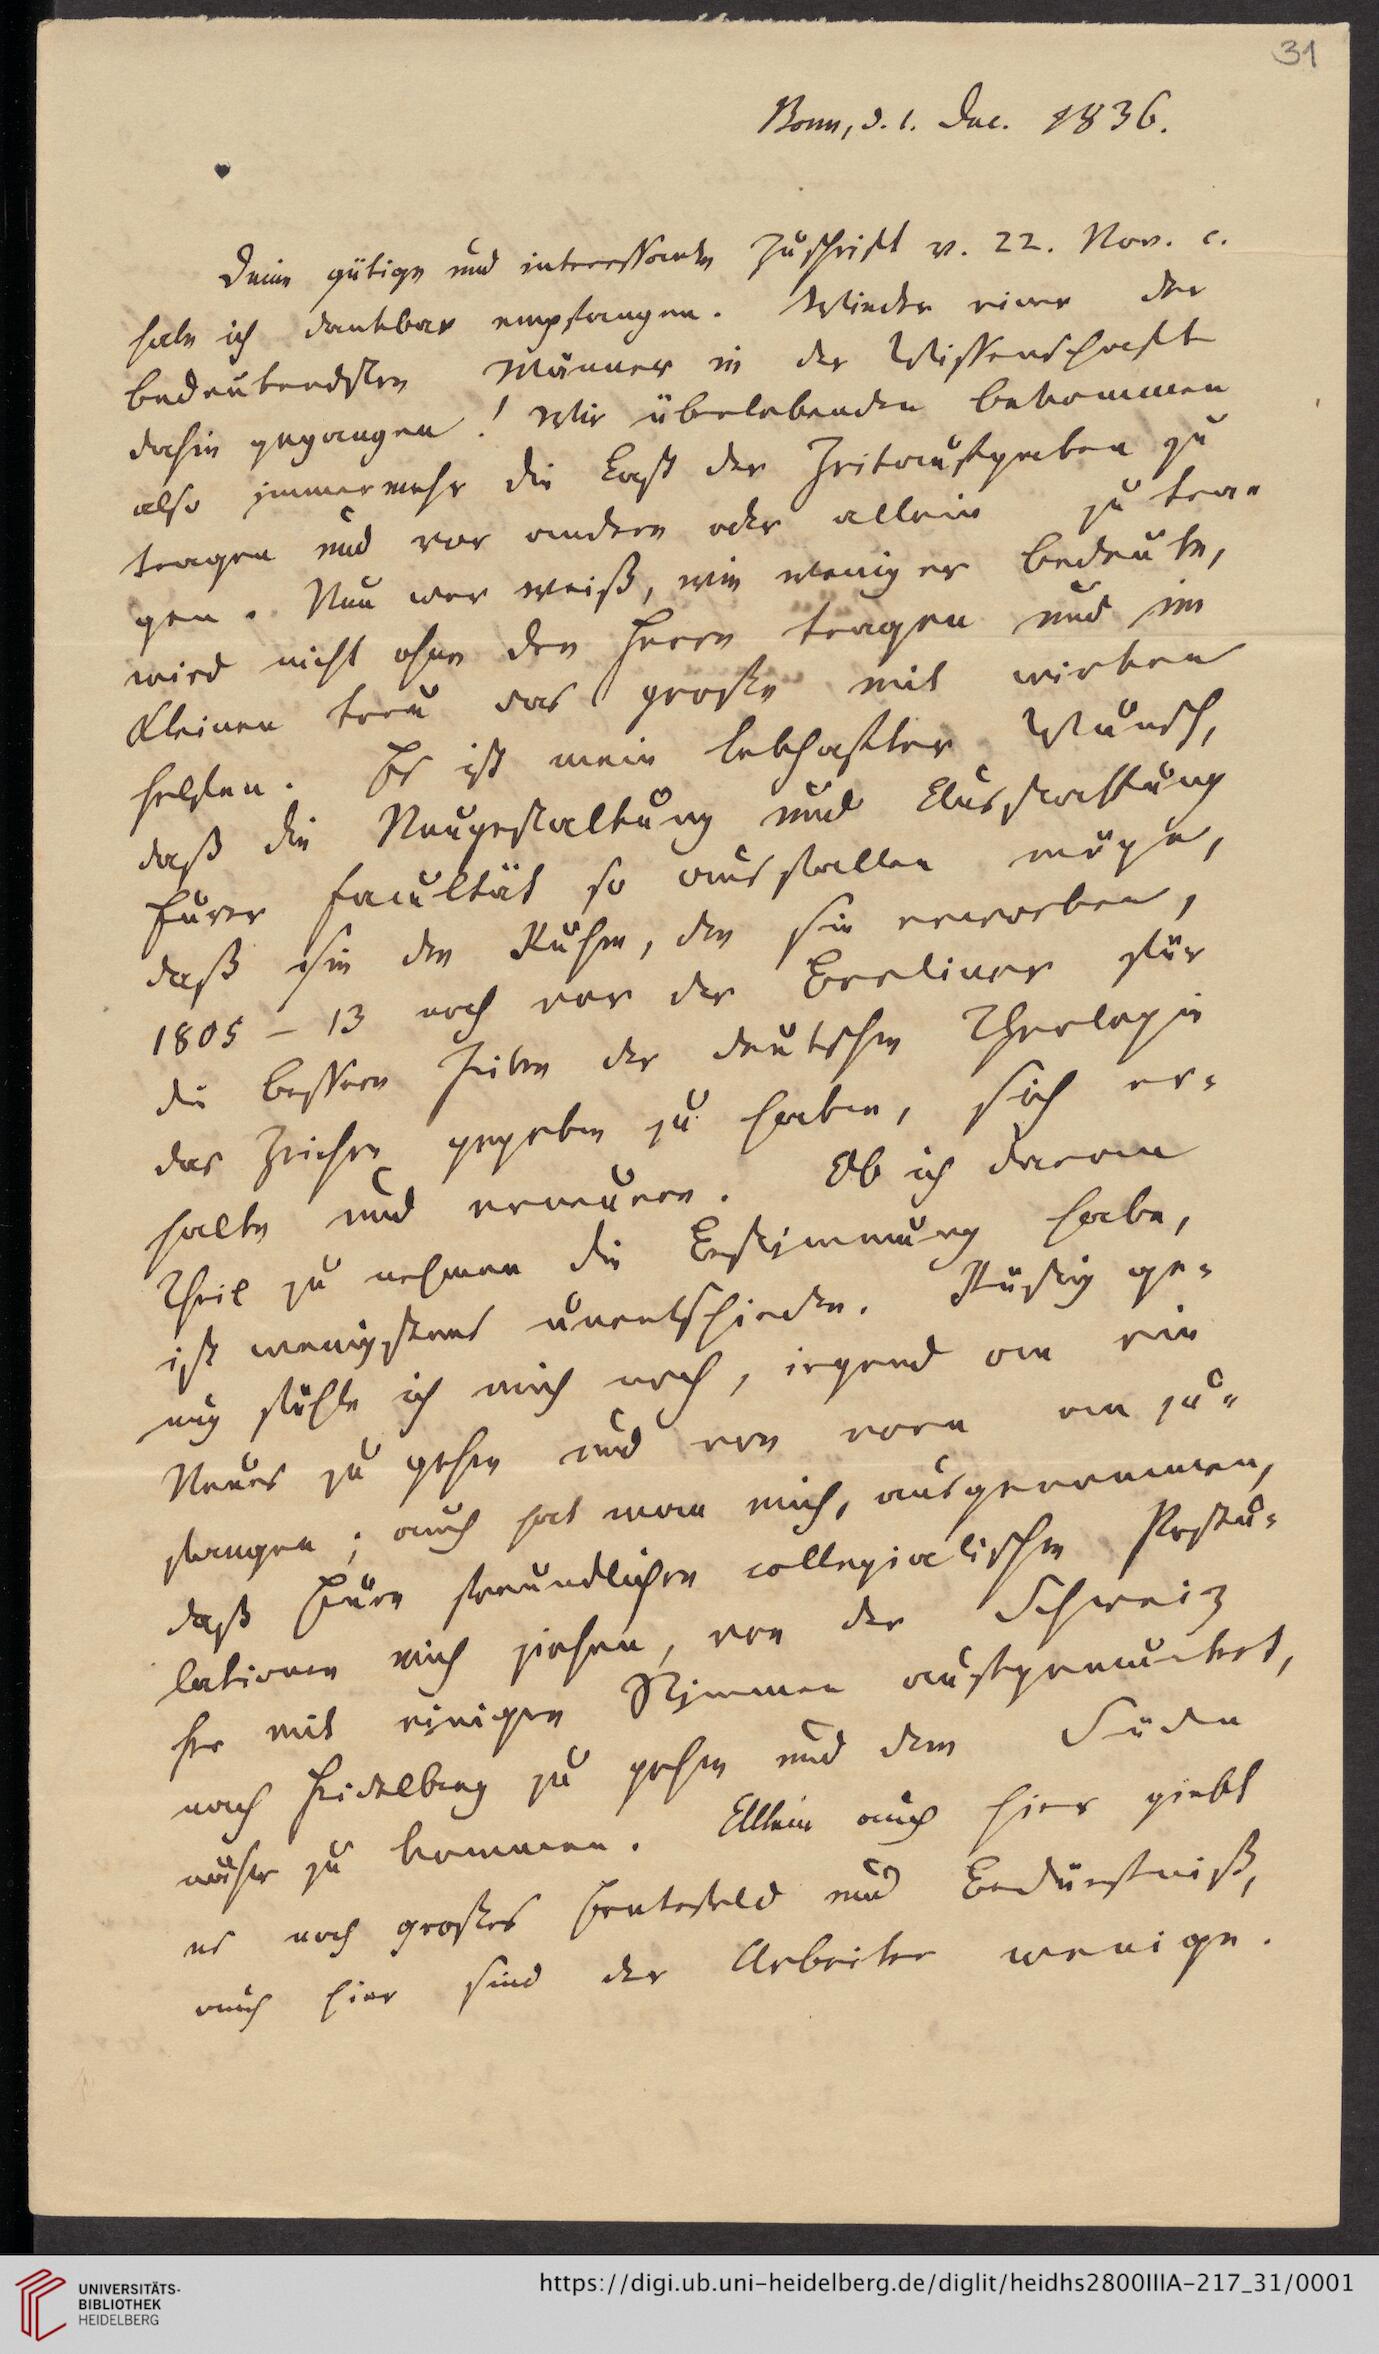 31
Bonn, d. 1. Dec. 1836.
Deine gütige und interessante Zuschrift v. 22. Nov. c.
habe ich dankbar empfangen. Wieder einer der
bedeutendsten Männer in der Wissenschaft
dahin gegangen! Wir überlebenden bekommen
also immer mehr die Last der Zeitaufgaben zu
tragen und vor andern oder allein zu tra-
gen. Nun wer weiß, wie wenig er bedeute,
wird nicht ohne den Herrn tragen und im
Kleinen treu das große mit wirken
helfen. Es ist mein lebhafter Wunsch,
daß die Neugestaltung und Ausstattung
Eurer Facultät so ausfallen möge,
daß sie den Ruhm, den sie erworben,
1805 – 13 noch vor der Berliner für
die bessern Zeiten der deutschen Theologie
das Zeichen gegeben zu haben, sich er-
halte und erneuere. Ob ich daran
Theil zu nehmen die Bestimmung habe,
ist wenigstens unentschieden. Rüstig ge-
nug fühle ich mich noch, irgend an ein
Neues zu gehen und von vorn an zu-
fangen; auch hat man mich, ausgenommen,
daß Eure freundlichen collegialischen Postu-
lationen mich ziehen, von der Schweiz
her mit einigen Stimmen aufgemuntert,
nach Heidelberg zu gehen und dem Süden
näher zu kommen. Allein auch hier giebt
es noch großes Erntefeld und Bedürfniß,
auch hier sind der Arbeiter wenige.
UNIVERSITÄTS-
BIBLIOTHEK
HEIDELBERG
https://digi.ub.uni-heidelberg.de/diglit/heidhs2800IIIA-217_31/0001